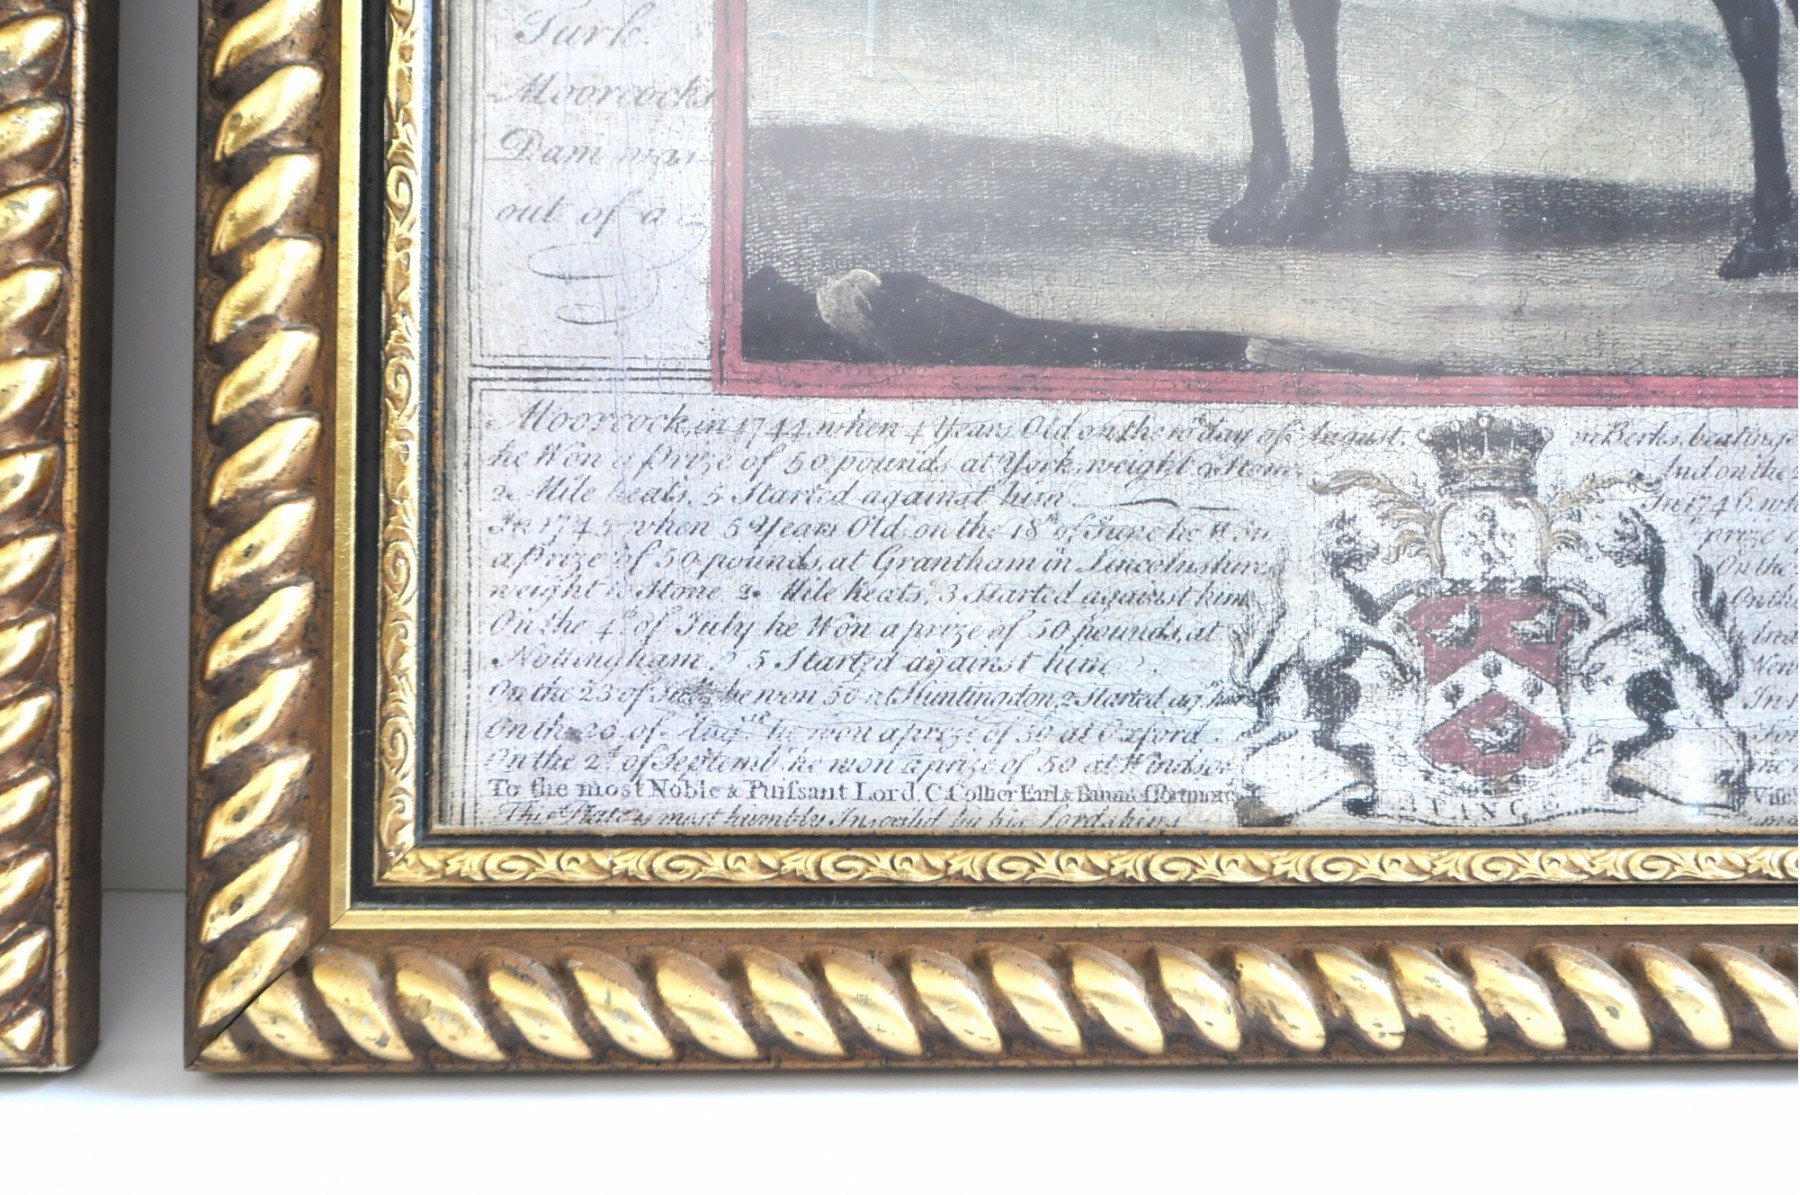 Turk.
Moorcocks
Dam was
out of a
Moorcock, in 1744 when 4 Years Old on the 10th day of August,
he Won a Prize of 50 pounds at York, weight 9 Stone
2 Mile heats, 5 Started against him
In 1745 when 5 Years Old, on the 18th of June he Won
a Prize of 50 pounds, at Grantham in Lincolnshire
weight 10 Stone 2 Mile heats, 3 Started against him
On the 4th of July he Won a prize of 50 pounds, at
Nottingham, 5 Started against him
On the 23 of July he won 50 at Huntingdon, 2 Started
On the 20 of Augst he won a prize of 50 at Oxford
On the 2d of Septemb he won a prize of 50 at Windsor
To the most Noble & Puissant Lord, C. Collier Earl &
This Plate is most humbly Inscrib'd by his Lordships
in Berks, beating
And on the
In 1746, wh
prize
On the
On the
New
In
For